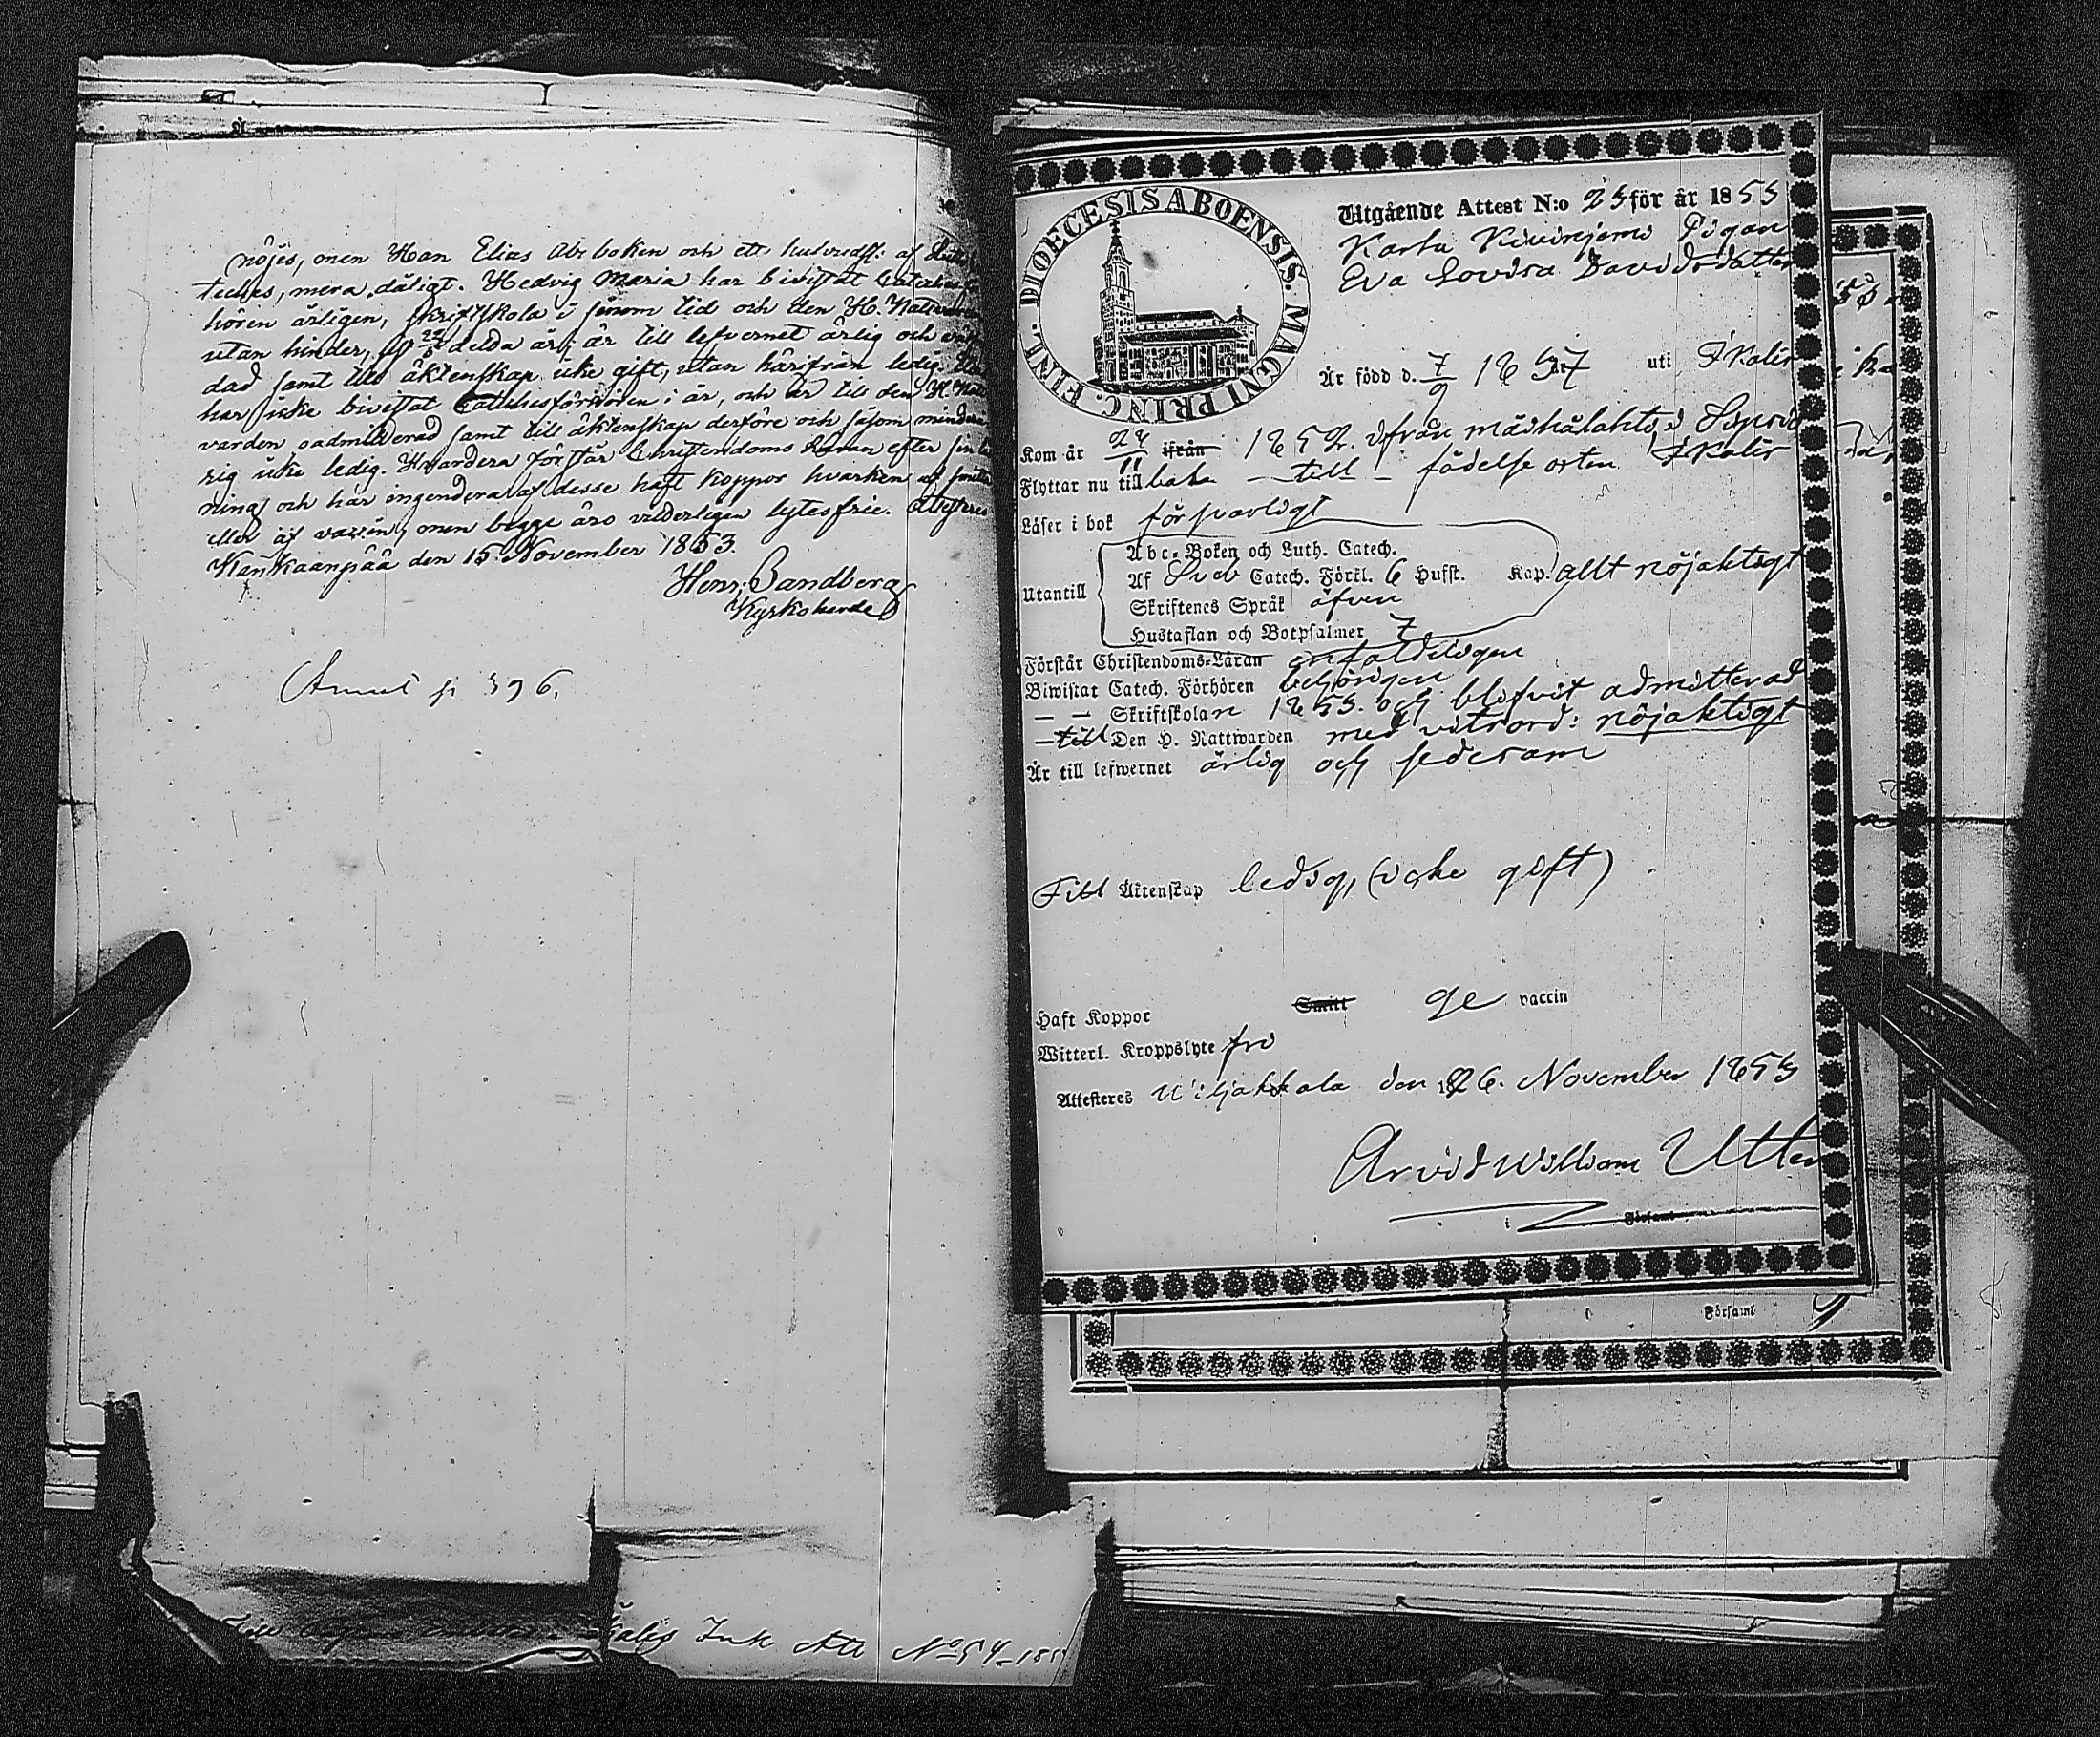 nöjes, men Han Elias Abc boken och ett hufvudst: af
teches, mera dåligt. Hedvig Maria har bivistat
hören årligen, skriftskola i sinom tid och den H.
utan hinder, är till lefvernet ärlig och
dad samt till äktenskap icke gift, utan härifrån ledig.
har icke bivistat Catechesförhören i år, och är till den H.
varden oadmitterad samt till äktenskap derföre och såsom
rig icke ledig. Hvardera förstår Christendoms läran efter sin
ning och har ingendera af desse haft koppor hvarken af
eller af vaccin, men begge äro vitterligen lytesfrie. Attesteres
Kankaanpää den 15 November 1853.
Henr. Sandberg
Kyrkoherde
p 396.
Ink Att No 54
DIOECESIS ABOENSIS. MAGNI PRINC. FINL.
Utgående Attest N:o 23 för år 1853
Pigan
Eva Lovisa Davidsdotter
Är född d. 7/9 1837 uti Ikalis
Kom år 28/11 ifrån 1852. ifrån
Flyttar nu till baka - till - födelse orten Ikalis
Läser i bok försvarligt
Abc-Boken och Luth. Catech.
Af Sveb Catech. Förkl. 6 Hufst. Kap. allt nöjaktigt
Utantill
Skriftenes Språk äfven
Hustaflan och Botpsalmer 7
Förstår Christendoms-Läran enfaldeligen
Biwistat Catech. Förhören behörigen
— — Skriftskolan 1853. och blifvit admitterad
— till Den H. Nattwarden med vitsord: nöjaktigt
Är till lefwernet ärlig och sedesam
Till Äktenskap ledig, (icke gift)
Haft Koppor Smitt ge vaccin
Witterl. Kroppslyte fri
Attesteres Viljakkala den 26. November 1853
Arvid William Utter
i Församl
i Församl